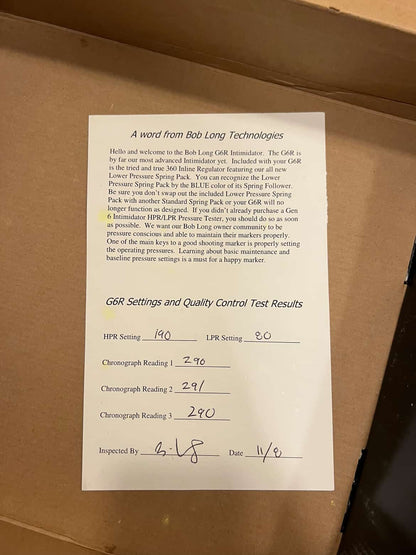 A word from Bob Long Technologies
Hello and welcome to the Bob Long G6R Intimidator. The G6R is
by far our most advanced Intimidator yet. Included with your G6R
is the tried and true 360 Inline Regulator featuring our all new
Lower Pressure Spring Pack. You can recognize the Lower
Pressure Spring Pack by the BLUE color of its Spring Follower.
Be sure you don't swap out the included Lower Pressure Spring
Pack with another Standard Spring Pack or your G6R will no
longer function as designed. If you didn't already purchase a Gen
6 Intimidator HPR/LPR Pressure Tester, you should do so as soon
as possible. We want our Bob Long owner community to be
pressure conscious and able to maintain their markers properly.
One of the main keys to a good shooting marker is properly setting
the operating pressures. Learning about basic maintenance and
baseline pressure settings is a must for a happy marker.
G6R Settings and Quality Control Test Results
HPR Setting 190 LPR Setting 80
Chronograph Reading 1 290
Chronograph Reading 2 291
Chronograph Reading 3 290
Inspected By Date 11/8